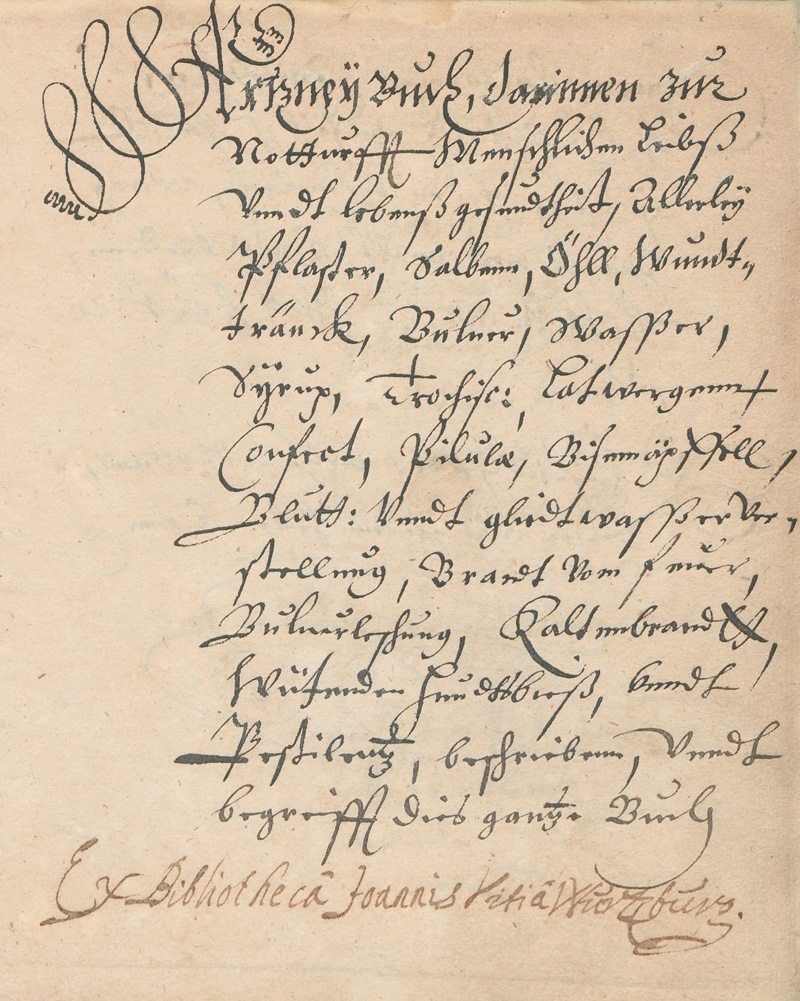 Artzneÿ Buch, darinnen zur
Notturfft Menschlichen Leibß
Vnndt lebenß gesundtheit, Allerleÿ
Pflaster, Salbenn, Öhll, Wundt-
tränck, Buluer, Wasser,
Sÿrup, Trochisc:, Latwergenn,
Confect, Pilulæ, Bisemäpffell,
Blutt: Vnndt gliedtwasser Ver-
stellung, Brandt Vom feuer,
Buluerleschung, Kaltenbrandtß,
Wütenden hundtsbieß, Vnndt
Pestilentz, beschriebenn, Vnndt
begreifft dies gantze Buch
Ex Bibliothecâ Joannis Wurtzburg.